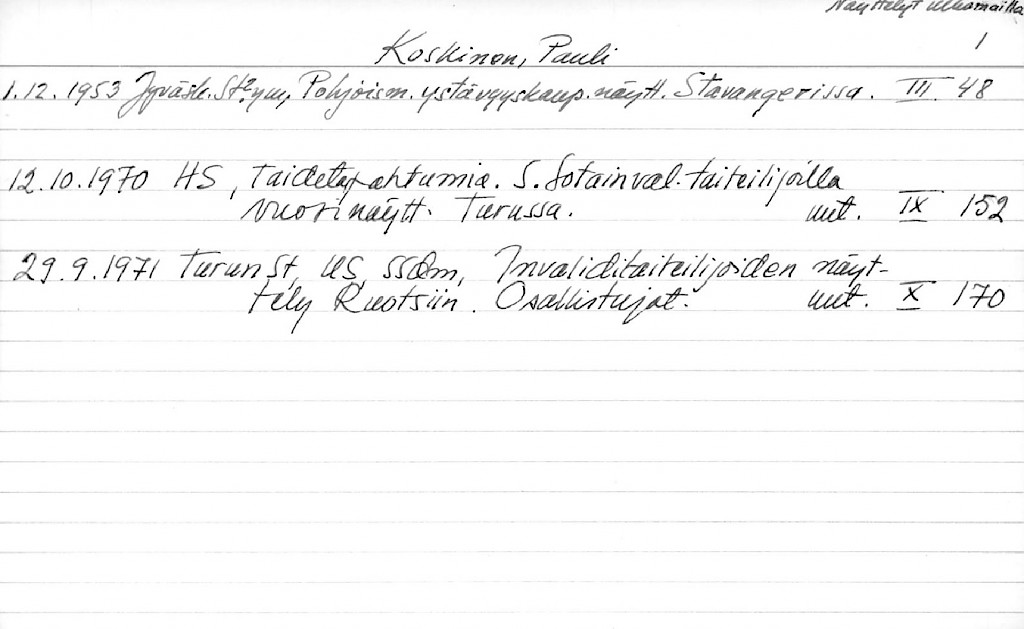 Näyttelyt ulkomailla
1
Koskinen, Pauli
1.12.1953 Jyväsk. St? ym, Pohjoism. ystävyyskaup. näytt. Stavangerissa. III 48
12.10.1970 HS, Taidetapahtumia. S. Sotainval. taiteilijoilla
vuosinäytt. Turussa. uut. IX 152
29.9.1971 Turun St, US, SSdm, Invaliditaiteilijoiden näyt-
tely Ruotsiin. Osallistujat. uut. X 170